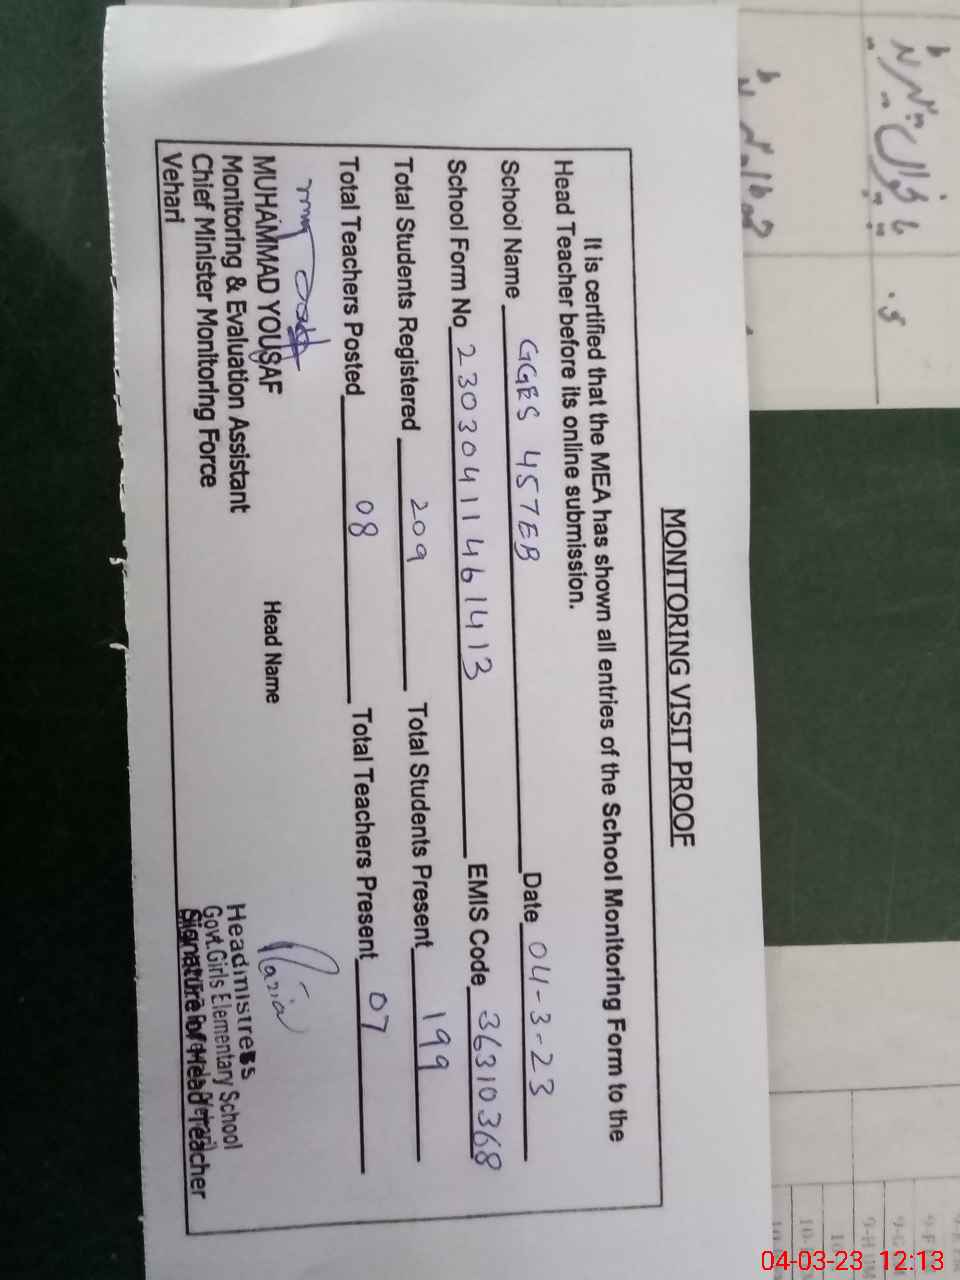 MONITORING VISIT PROOF
It is certified that the MEA has shown all entries of the School Monitoring Form to the
Head Teacher before its online submission.
School Name GGES 457EB Date 04-3-23
School Form No 2303041146 1413 EMIS Code 36310368
Total Students Registered 209 Total Students Present 199
Total Teachers Posted 08 Total Teachers Present 07
MUHAMMAD YOUSAF Head Name Nazia
Monitoring & Evaluation Assistant Headmistress
Chief Minister Monitoring Force Govt. Girls Elementary School
Vehari Signature of Head Teacher
9-F
9-G
9-H
10-
04-03-23 12:13